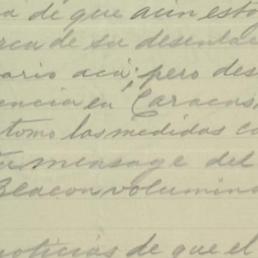 a de que aún esta
rca de su desenla
ario acá; pero des
encia en Caracas,
tomo las medidas co
mensage del
Beacon volumino
noticias de que el